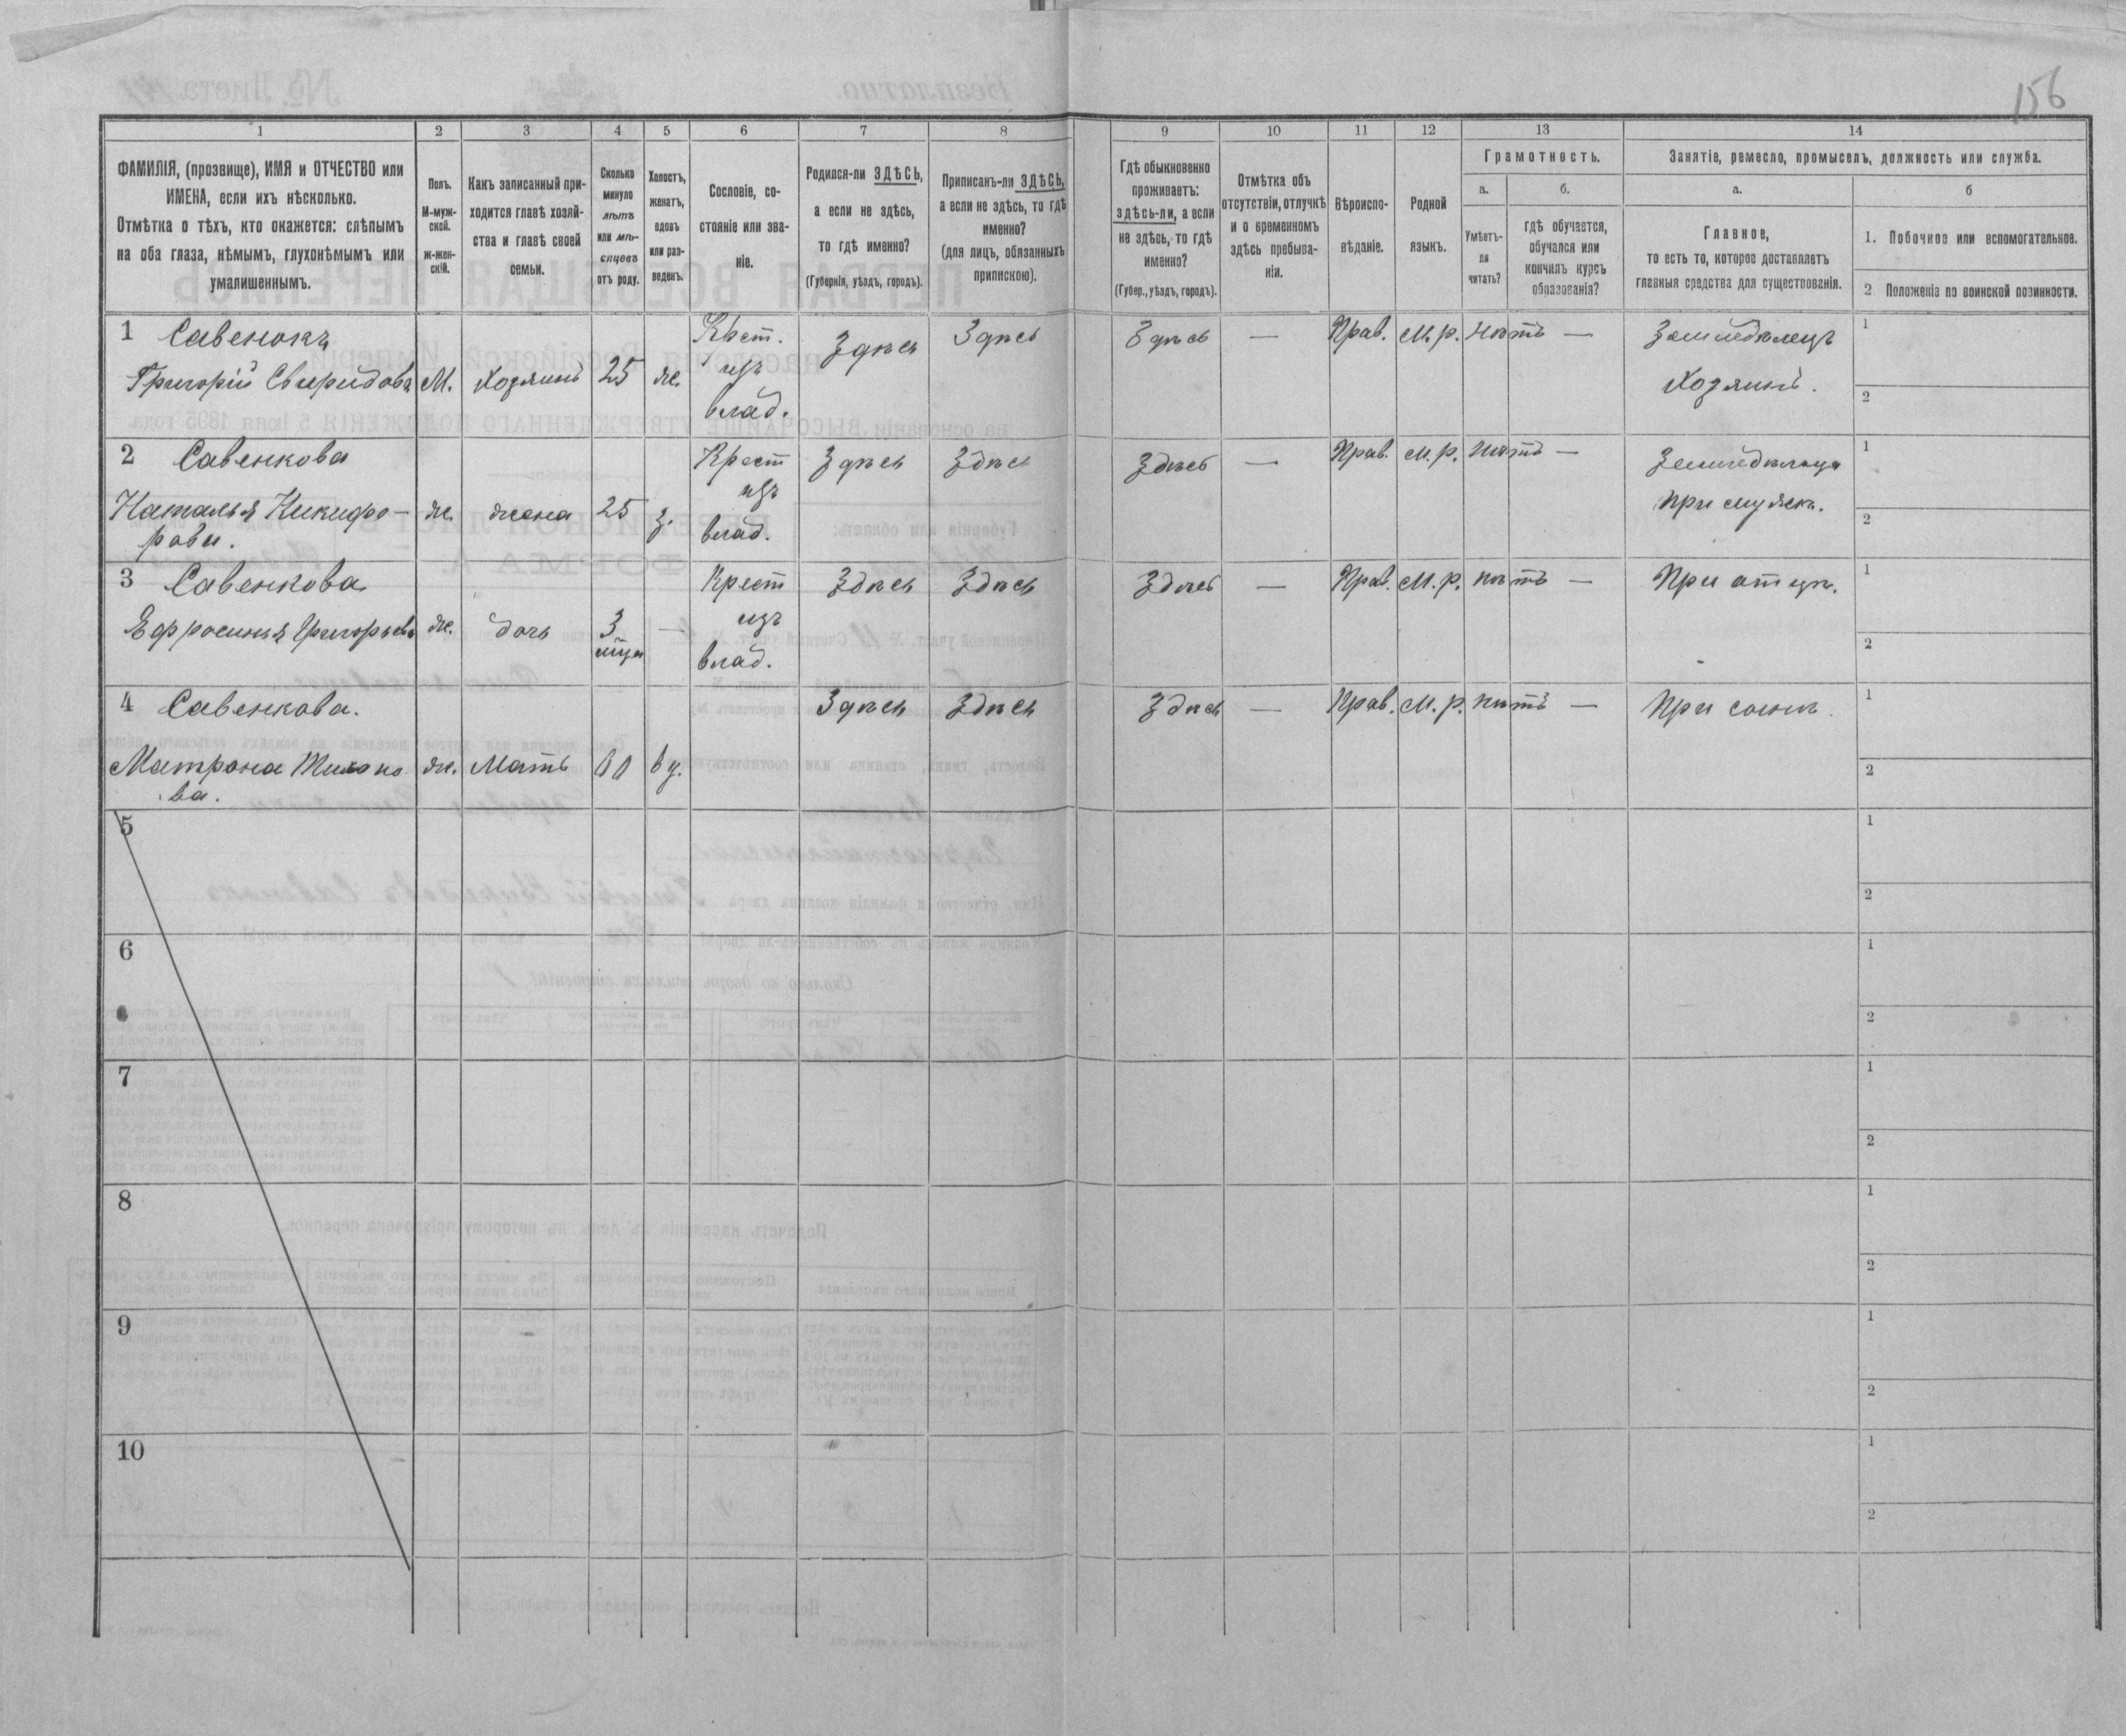 156
1 2 3 4 5 6 7 8 9 10 11 12 13 14
ФАМИЛІЯ, (прозвище), ИМЯ и ОТЧЕСТВО или
ИМЕНА, если ихъ нѣсколько.
Отмѣтка о тѣхъ, кто окажется: слѣпымъ
на оба глаза, нѣмымъ, глухонѣмымъ или
умалишеннымъ.
Полъ.
М-муж-
ской.
ж-жен-
скій.
Какъ записанный при-
ходится главѣ хозяй-
ства и главѣ своей
семьи.
Сколько
минуло
лѣтъ
или мѣ-
сяцевъ
отъ роду.
Холостъ,
женатъ,
вдовъ
или раз-
веденъ.
Сословіе, со-
стояніе или зва-
ніе.
Родился-ли ЗДѢСЬ,
а если не здѣсь,
то гдѣ именно?
(Губернія, уѣздъ, городъ).
Приписанъ-ли ЗДѢСЬ,
а если не здѣсь, то гдѣ
именно?
(для лицъ, обязанныхъ
припискою).
Гдѣ обыкновенно
проживаетъ:
здѣсь-ли, а если
не здѣсь, то гдѣ
именно?
(Губер., уѣздъ, городъ).
Отмѣтка объ
отсутствіи, отлучкѣ
и о временномъ
здѣсь пребыва-
ніи.
Вѣроиспо-
вѣданіе.
Родной
языкъ.
Грамотность.
а.
Умѣетъ-
ли
читать?
б.
гдѣ обучается,
обучался или
кончилъ курсъ
образованія?
Занятіе, ремесло, промыселъ, должность или служба.
а.
Главное,
то есть то, которое доставляетъ
главныя средства для существованія.
б
1. Побочное или вспомогательное.
2. Положеніе по воинской повинности.
1 Савенокъ
Григорій Свиридовъ
М. Хозяинъ 25 ж.
Крест.
изъ
влад.
Здѣсь Здѣсь Здѣсь — Прав. М.р. нѣтъ —
Земледѣлецъ
Хозяинъ.
1
2
2 Савенкова
Наталья Никифо-
рова.
ж. жена 25 з.
Крест
изъ
влад.
Здѣсь Здѣсь Здѣсь — Прав. М.р. нѣтъ —
Земледѣлица
при мужѣ.
1
2
3 Савенкова
Ефросинья Григорьева
ж. дочь 3
мѣц —
Крест
изъ
влад.
Здѣсь Здѣсь Здѣсь — Прав. М.р. нѣтъ —
При отцѣ.
1
2
4 Савенкова.
Матрона
ва.
ж. Мать
Здѣсь Здѣсь Здѣсь — Прав. М.р. нѣтъ —
При сынѣ.
1
2
5
1
2
6
1
2
7
1
2
8
1
2
9
1
2
10
1
2